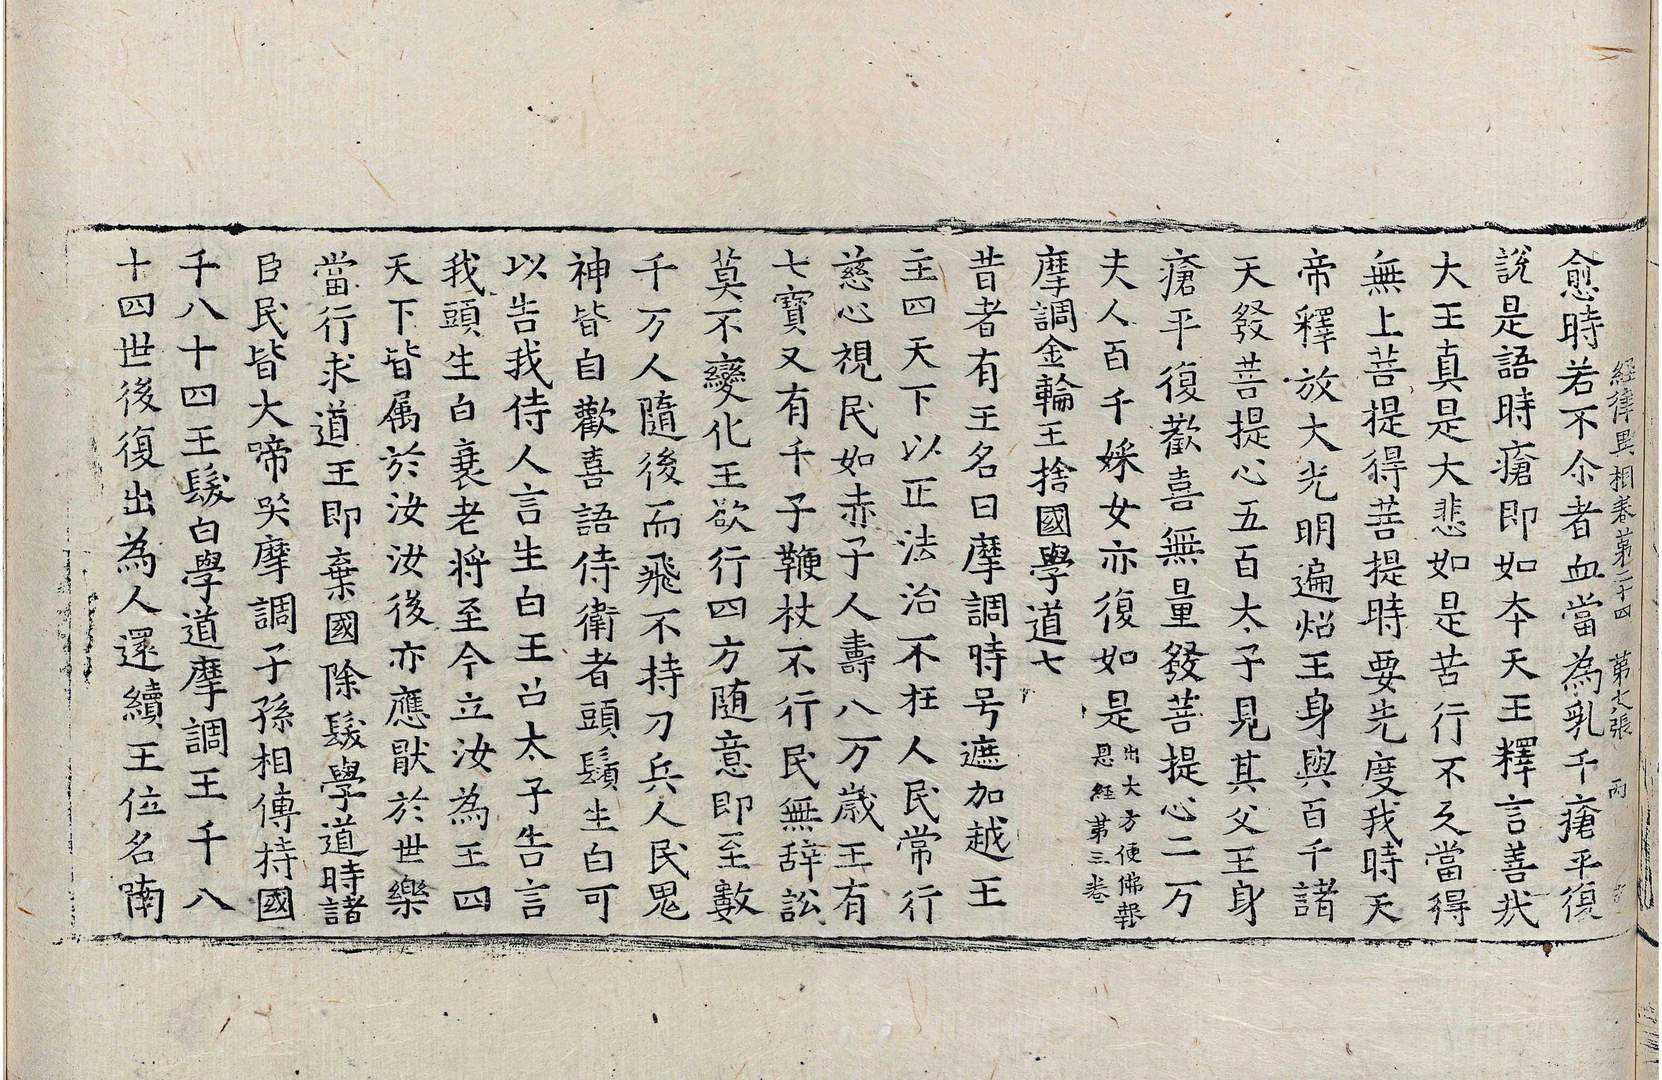 經律異相卷第二十四　第七張　丙
愈時若不尒者血當為乳千瘡平復
說是語時瘡即如本天王釋言善哉
大王真是大悲如是苦行不久當得
無上菩提得菩提時要先度我時天
帝釋放大光明遍炤王身與百千諸
天發菩提心五百太子見其父王身
瘡平復歡喜無量發菩提心二万
夫人百千婇女亦復如是出大方便佛報恩經第三卷
摩調金輪王捨國學道七
昔者有王名曰摩調時号遮加越王
主四天下以正法治不枉人民常行
慈心視民如赤子人壽八万歲王有
七寶又有千子鞭杖不行民無辞訟
莫不變化王欲行四方随意即至數
千万人隨後而飛不持刀兵人民鬼
神皆自歡喜語侍衛者頭鬚生白可
以告我侍人言生白王召太子告言
我頭生白衰老將至今立汝為王四
天下皆属於汝汝後亦應猒於世樂
當行求道王即棄國除髮學道時諸
臣民皆大啼哭摩調子孫相傳持國
千八十四王髮白學道摩調王千八
十四世後復出為人還續王位名南